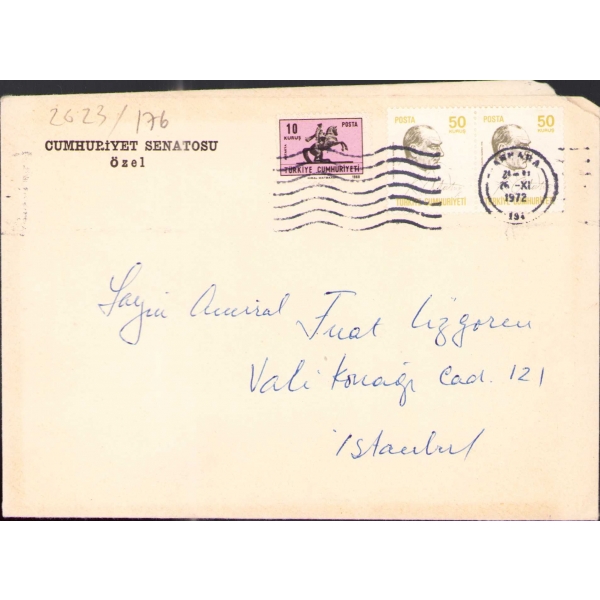 2023/176
CUMHURİYET SENATOSU
özel
10
KURUŞ
POSTA
TÜRKİYE CUMHURİYETİ
POSTA 50
KURUŞ
TÜRKİYE CUMHURİYETİ
POSTA 50
KURUŞ
TÜRKİYE CUMHURİYETİ
ANKARA
-XI
1972
Sayın Amiral Fuat Uzgören
Vali Konağı Cad. 121
İstanbul